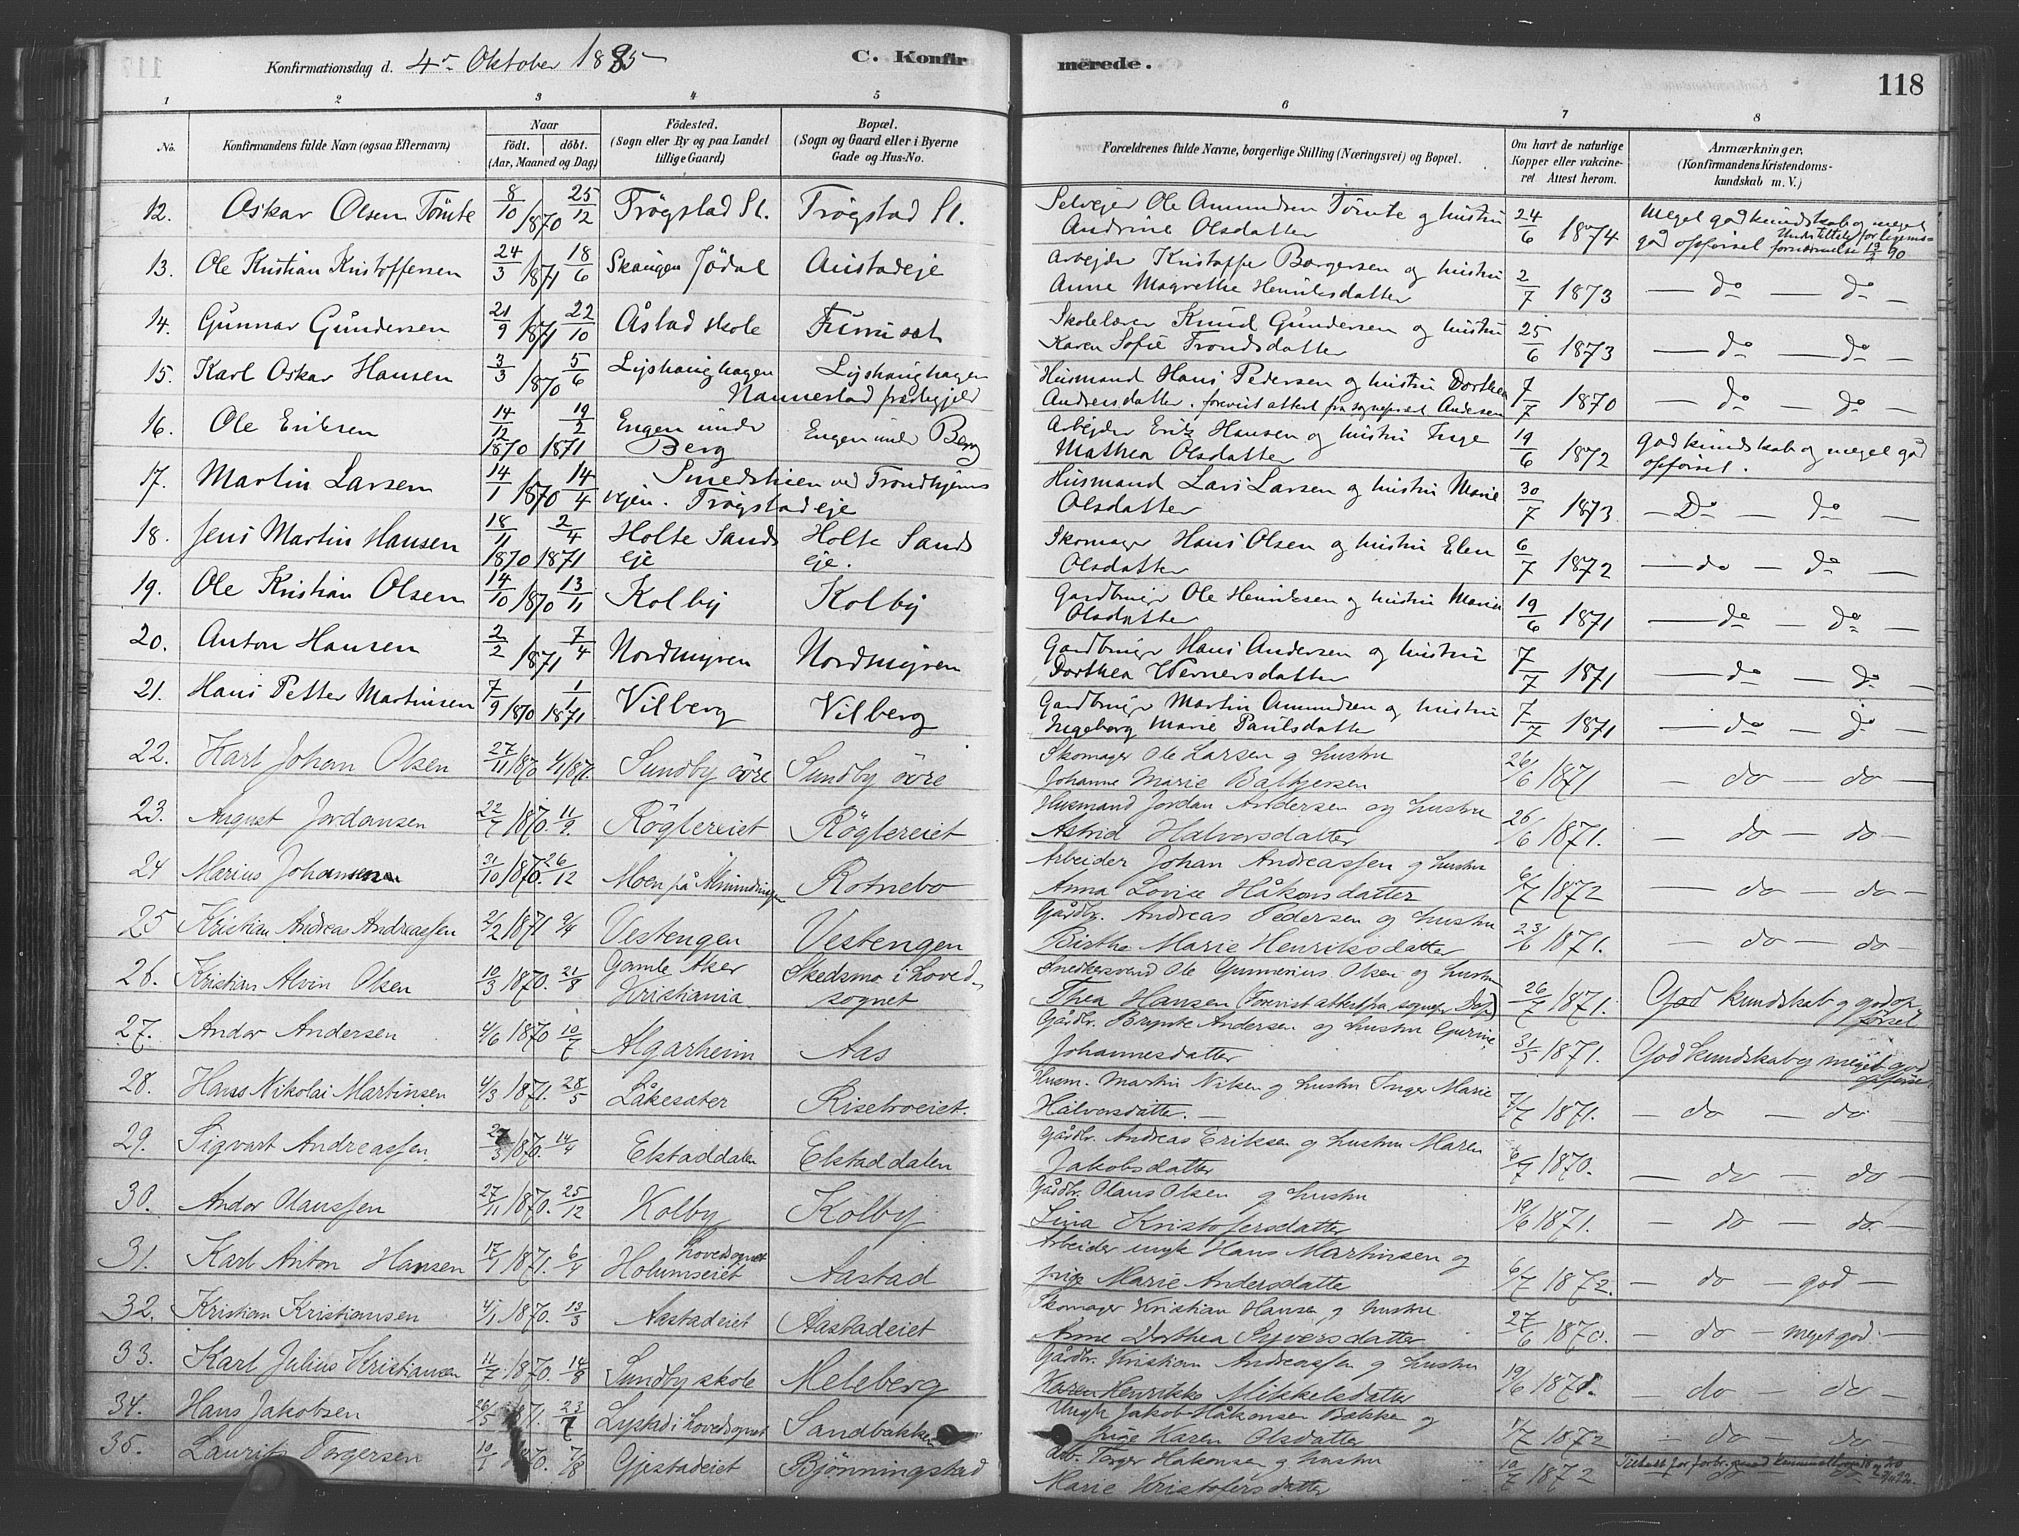 Konfirmationsdag d. 4de Oktober 1885
C. Konfirmerede.
118
1 2 3 4 5 6 7 8
No.
Konfirmandens fulde Navn (ogsaa Efternavn)
Naar
födt. döbt.
(Aar, Maaned og Dag)
Födested.
(Sogn eller By og paa Landet tillige Gaard)
Bopæl.
(Sogn og Gaard eller i Byerne Gade og Hus-No.
Forældrenes fulde Navne, borgerlige Stilling (Næringsvei) og Bopæl.
Om havt de naturlige Kopper eller vakcineret Attest herom.
Anmærkninger.
(Konfirmandens Kristendomskundskab m. V.)
12. Oskar Olsen Tömte 8/10 1870 25/12 Trögstad St. Trögstad St. Selvejer Ole Amundsen Tömte og hustru Andrine Olsdatter 24/6 1874 Meget god kundskab og meget god opförsel
13. Ole Kristian Kristoffersen 24/3 1871 18/6 Skaugen Jödal Austadeje Arbejder Kristoffer Borgersen og hustru Anne Magrethe Henriksdatter 2/7 1873 — do — do —
14. Gunnar Gundersen 21/9 1871 22/10 Åstad skole Furuset Skolelærer Knud Gundersen og hustru Karen Sofie Trondsdatter 25/6 1873 — do — do
15. Karl Oskar Hansen 3/3 1870 5/6 Lyshaughagen Lyshaughagen Nannestad præstegjeld Husmand Hans Pedersen og hustru Dorthea Andersdatter. forevist attest fra sognepræst Andersen 7/7 1870 — do — do
16. Ole Eriksen 14/12 1870 19/2 1871 Engen under Berg Engen under Berg Arbejder Erik Hansen og hustru Inge Mathea Olsdatter 19/6 1872 god kundskab og meget god opförsel.
17. Martin Larsen 14/1 1870 14/4 Smedstuen ved Trondhjems vejen. Trögstadeje Husmand Lars Larsen og hustru Marie Olsdatter 30/7 1873 — Do — do —
18. Jens Martin Hansen 18/11 1870 2/4 1871 Holte Sands eje Holte Sands eje. Skomager Hans Olsen og hustru Elen Olsdatter 6/7 1872 — do — do —
19. Ole Kristian Olsen 14/10 1870 13/11 Kolby Kolby Gardbruger Ole Henriksen og hustru Maria Olsdatter 19/6 1871 — do — do —
20. Anton Hansen 2/2 1871 7/4 Nordmyren Nordmyren Gardbruger Hans Andersen og hustru Dorthea Wernersdatter 7/7 1871 — do — do —
21. Hans Petter Martinsen 7/9 1870 1/1 1871 Vilberg Vilberg Gardbruger Martin Amundsen og hustru Ingeborg Marie Paulsdatter 7/7 1871 — do — do
22. Karl Johan Olsen 27/11 1870 1/1 1871 Sundby övre Sundby övre Skomager Ole Larsen og hustru Johanne Marie Baltzersen 26/6 1871 — do — do —
23. August Jordansen 22/7 1870. 11/9 Röglereiet Röglereiet Husmand Jordan Andersen og hustru Astrid Halvorsdatter 26/6 1871. — do — do —
24 Marius Johansen 31/10 1870. 26/12 Moen på Almindingen Rotnebo Arbeider Johan Andreassen og hustru Anna Lovise Håkonsdatter 6/7 1872 — do — do —
25 Kristian Andreas Andreassen 2/2 1871 9/4 Vestengen Vestengen Gårdbr. Andreas Pedersen og hustru Birthe Marie Henriksdatter 23/6 1871. — do — do —
26. Kristian Alvin Olsen 10/3 1870. 21/8 Gamle Aker Kristiania Skedsmo i hovedsognet Snedkersvend Ole Gunnerius Olsen og hustru Thea Hansen (Forevist attest fra sognepr. Dop) 26/7 1871. God kundskab g god opförsel
27. Andor Andersen 4/6 1870 10/7 Algarheim Aas Gårdbr. Brynte Andersen og hustru Gurine Johannesdatter 31/5 1871. God kundskab g meget god opförsel
28. Hans Nikolai Martinsen 4/3 1871. 28/5 Låkesæter Risetroeiet. Husm. Martin Nilsen g hustru Inger Marie Halvorsdatter. — 7/7 1871. — do — do
29. Sigvart Andreassen 27/3 1870. 14/4 Elstaddalen Elstaddalen Gårdbr. Andreas Eriksen g hustru Maren Jakobsdatter 6/7 1870. — do — do
30. Andor Olaussen 27/11 1870. 25/12 Kolby Kolby Gårdbr. Olaus Olsen g hustru Lina Kristofersdatter 19/6 1871. — do — do —
31. Karl Anton Hansen 17/1 1871. 6/4 hovedsognet Holumseiet Aastad Arbeider ungk Hans Martinsen og pige Marie Andersdatter 6/7 1872. — do — god —
32. Kristian Kristiansen 4/1 1870. 13/3 Aastadeiet Aastadeiet Skomager Kristian Hansen g hustru Anne Dorthea Syversdatter 27/6 1870. — do — meget god —
33. Karl Julius Kristiansen 11/7 1870. 14/8 Sundby skole Meleberg Gårdbr. Kristian Andreassen g hustru Karen Henrikke Mikkelsdatter 19/6 1871. — do — do —
34. Hans Jakobsen 26/5 1871. 23/7 Lystad i hovedsognet Sandbakken Ungk Jakob Håkonsen Bakken og pige Karen Olsdatter 7/7 1872 — do — do —
35. Laurits Torgersen 10/1 1870. 7/8 Gjestadeiet Bjönningstad Arb. Torger Hakonsen g hustru Marie Kristofersdatter 10/7 1872